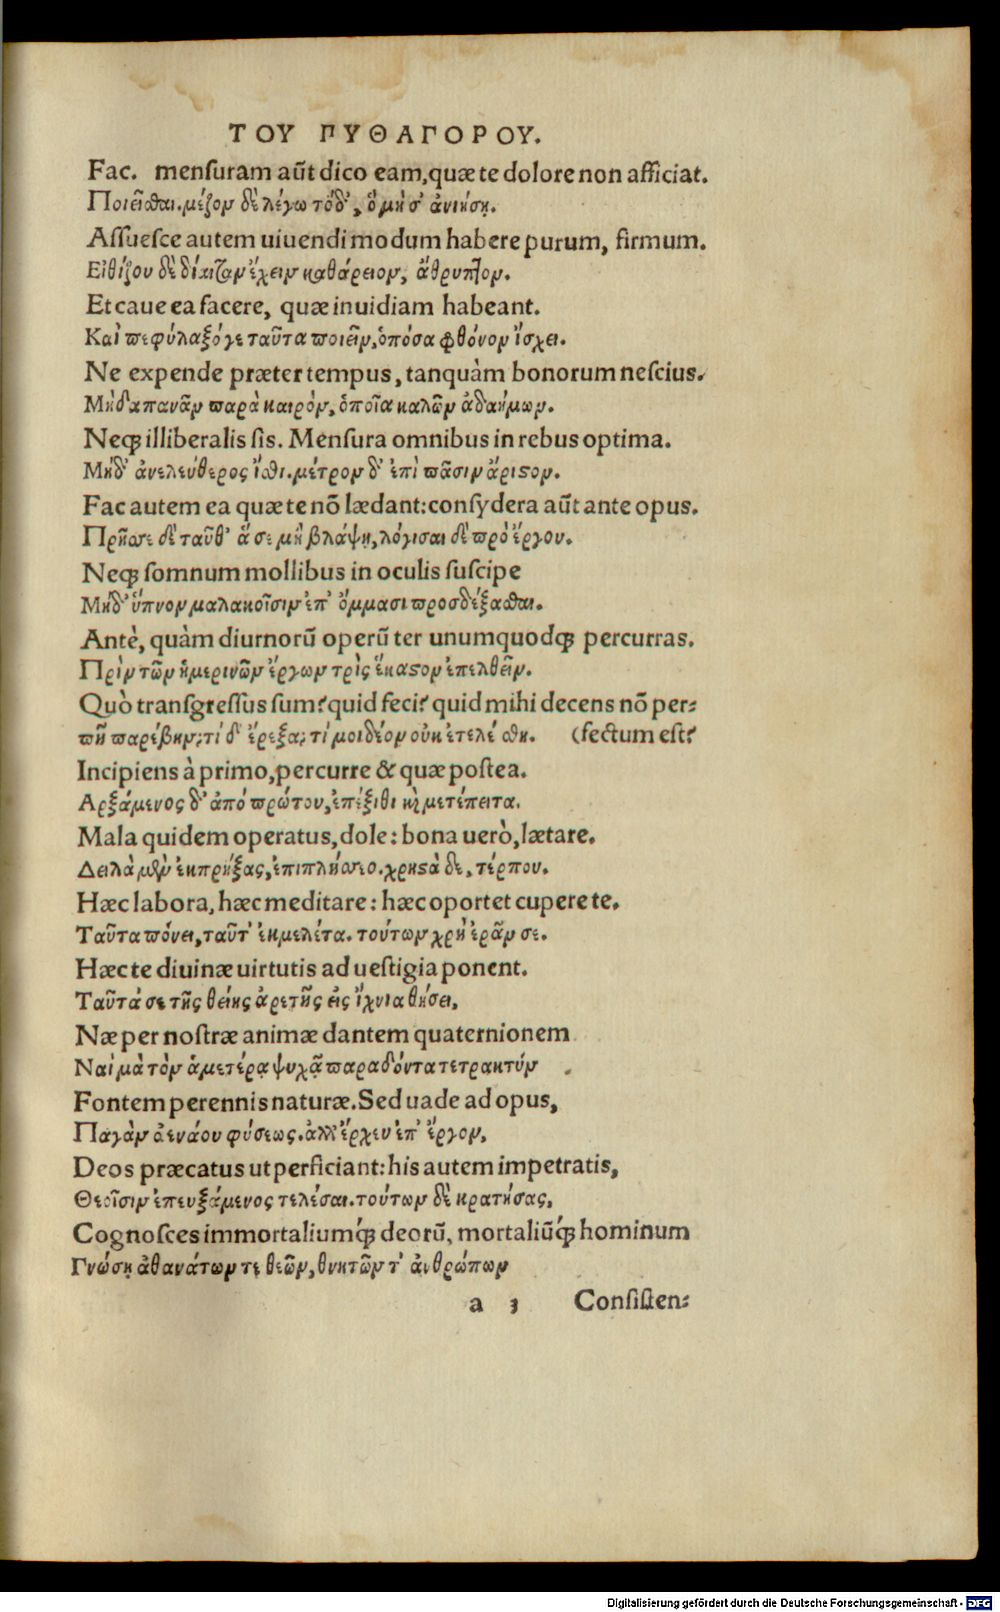 ΤΟΥ ΠΥΘΑΓΟΡΟΥ.
Fac. mensuram aūt dico eam, quæ te dolore non afficiat.
Ποιεῖσθαι. μέζον δὲ λέγω τόδ', ὅ μή σ' ἀνιήσῃ.
Assuesce autem uiuendi modum habere purum, firmum.
Εἰθίζου δὲ δίαιταν ἔχειν καθάρειον, ἄθρυπτον.
Et caue ea facere, quæ inuidiam habeant.
Καὶ πεφύλαξό γε ταῦτα ποιεῖν, ὁπόσα φθόνον ἴσχει.
Ne expende præter tempus, tanquàm bonorum nescius.
Μὴ δαπανᾶν παρὰ καιρὸν, ὁποῖα καλῶν ἀδαήμων.
Neq; illiberalis sis. Mensura omnibus in rebus optima.
Μηδ' ἀνελεύθερος ἴσθι. μέτρον δ' ἐπὶ πᾶσιν ἄριστον.
Fac autem ea quæ te nō lædant: consydera aūt ante opus.
Πρῆσσε δὲ ταῦθ' ἅ σε μὴ βλάψῃ, λόγισαι δὲ πρὸ ἔργου.
Neq; somnum mollibus in oculis suscipe
Μηδ' ὕπνον μαλακοῖσιν ἐπ' ὄμμασι προσδέξασθαι.
Antè, quàm diurnorū operū ter unumquodq; percurras.
Πρὶν τῶν ἡμερινῶν ἔργων τρὶς ἕκαστον ἐπελθεῖν.
Quò transgressus sum? quid feci? quid mihi decens nō per-
πῆ παρέβην; τί δ' ἔρεξα; τί μοι δέον οὐκ ἐτελέσθη. (fectum est?
Incipiens à primo, percurre & quæ postea.
Αρξάμενος δ' ἀπὸ πρώτου, ἐπέξιθι καὶ μετέπειτα.
Mala quidem operatus, dole: bona uerò, lætare.
Δειλὰ μὲν ἐκπρήξας, ἐπιπλήσσεο. χρηστὰ δὲ, τέρπου.
Hæc labora, hæc meditare: hæc oportet cupere te.
Ταῦτα πόνει, ταῦτ' ἐκμελέτα. τούτων χρὴ ἐρᾶν σε.
Hæc te diuinæ uirtutis ad uestigia ponent.
Ταῦτά σε τῆς θείης ἀρετῆς εἰς ἴχνια θήσει,
Næ per nostræ animæ dantem quaternionem
Ναὶ μὰ τὸν ἁμετέρᾳ ψυχᾷ παραδόντα τετρακτὺν
Fontem perennis naturæ. Sed uade ad opus,
Παγὰν ἀενάου φύσεως. ἀλλ' ἔρχευ ἐπ' ἔργον,
Deos præcatus ut perficiant: his autem impetratis,
Θεοῖσιν ἐπευξάμενος τελέσαι. τούτων δὲ κρατήσας,
Cognosces immortaliumq́; deorū, mortaliūq́; hominum
Γνώσῃ ἀθανάτων τε θεῶν, θνητῶν τ' ἀνθρώπων
a 3 Consisten-
Digitalisierung gefördert durch die Deutsche Forschungsgemeinschaft - DFG